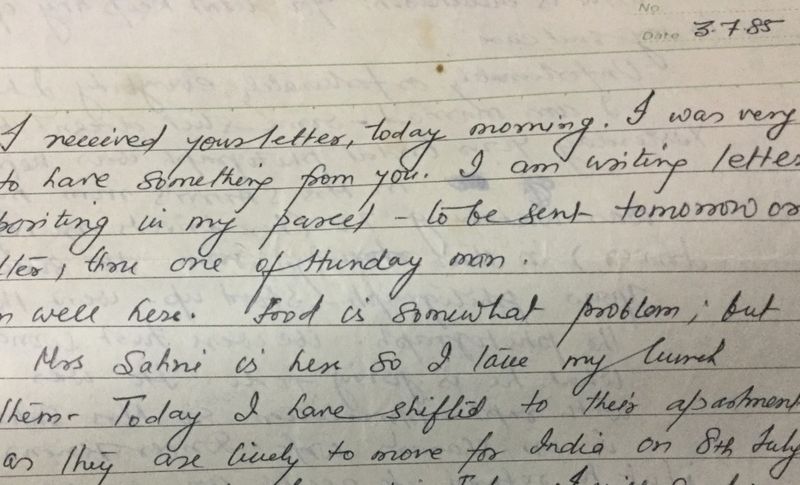 No
Date 3.7.85
I received your letter, today morning. I was very
to have something from you. I am writing letter
in my parcel - to be sent tomorrow or
, thru one of Hunday man.
well here. Food is somewhat problem; but
Mrs Sahni is here so I take my lunch
them. Today I have shifted to their apartment
as they are likely to move for India on 8th July